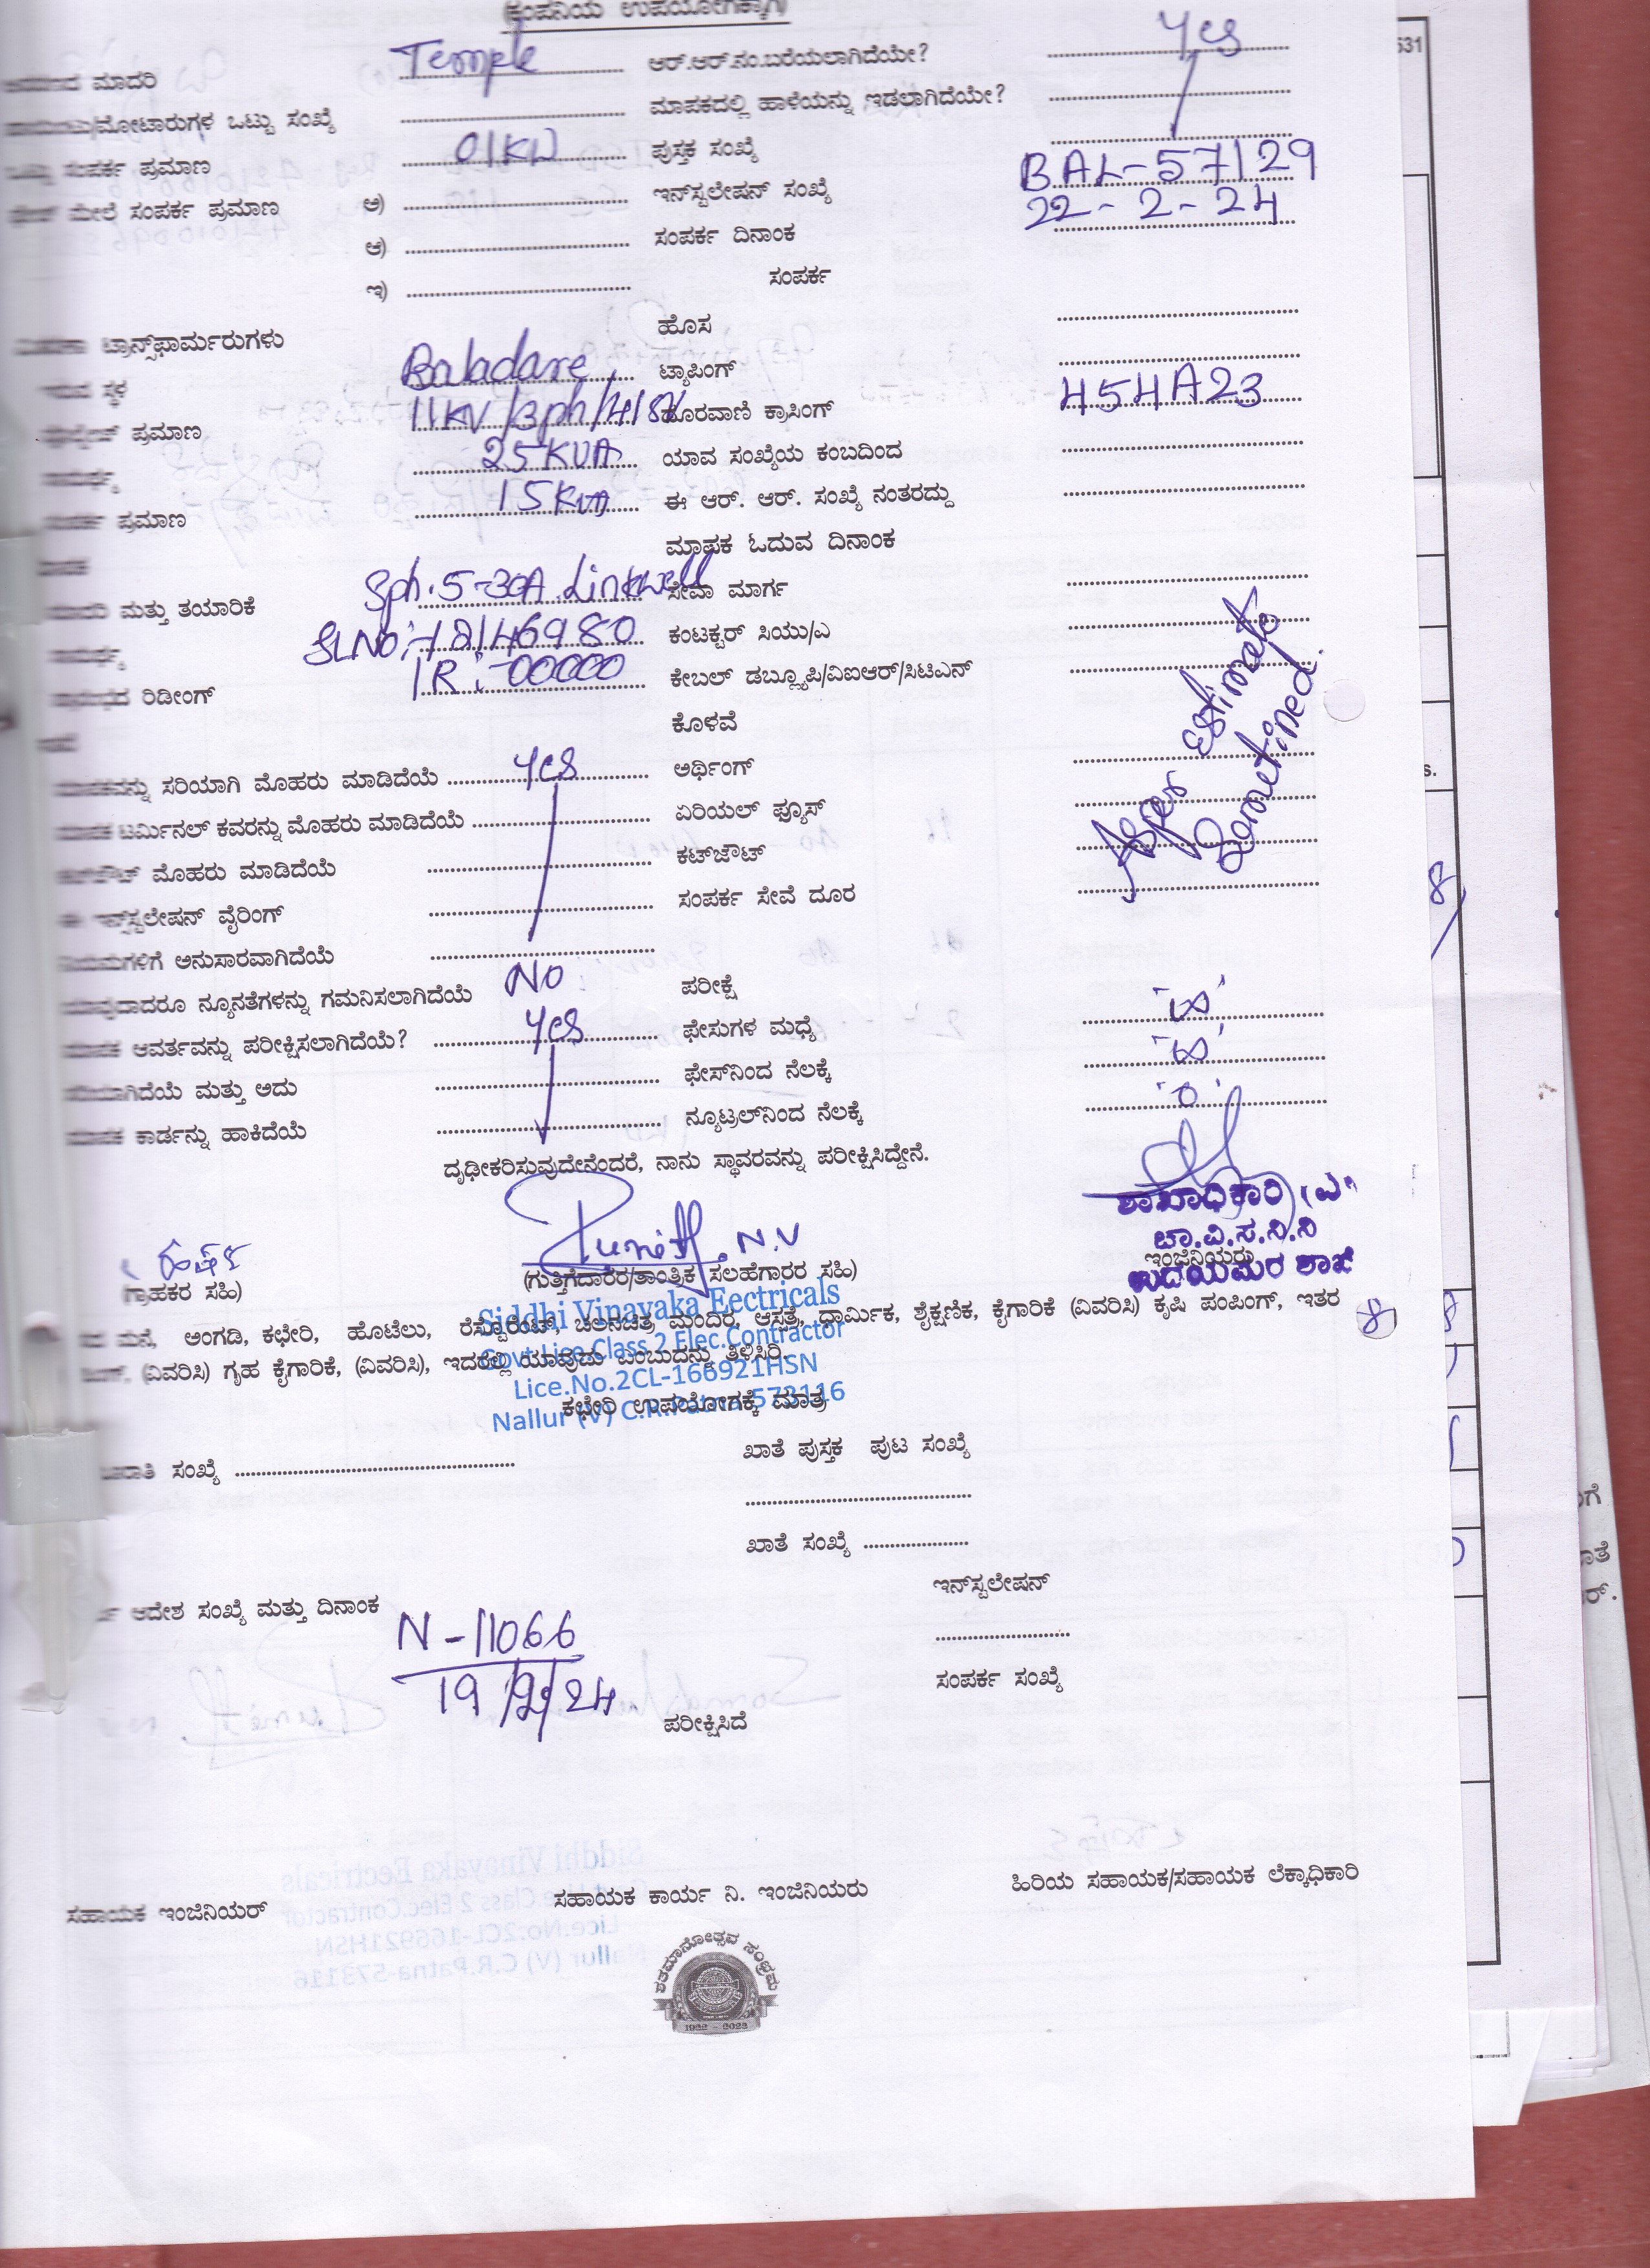 (ಕಂಪನಿಯ ಉಪಯೋಗಕ್ಕಾಗಿ)
ಮಾದರಿ Temple ಆರ್.ಆರ್.ನಂ.ಬರೆಯಲಾಗಿದೆಯೇ? Yes
/ಮೋಟಾರುಗಳ ಒಟ್ಟು ಸಂಖ್ಯೆ ಮಾಪಕದಲ್ಲಿ ಹಾಳೆಯನ್ನು ಇಡಲಾಗಿದೆಯೇ?
ಒಟ್ಟು ಸಂಪರ್ಕ ಪ್ರಮಾಣ 01KW ಪುಸ್ತಕ ಸಂಖ್ಯೆ
ಮೇಲೆ ಸಂಪರ್ಕ ಪ್ರಮಾಣ ಅ) ಇನ್‌ಸ್ಟಲೇಷನ್ ಸಂಖ್ಯೆ BAL-57129
ಆ) ಸಂಪರ್ಕ ದಿನಾಂಕ 22-2-24
ಇ) ಸಂಪರ್ಕ
ಟ್ರಾನ್ಸ್‌ಫಾರ್ಮರುಗಳು ಹೊಸ
ಸ್ಥಳ Baladare ಟ್ಯಾಪಿಂಗ್
ಪ್ರಮಾಣ 11KV/3ph/ ದೂರವಾಣಿ ಕ್ರಾಸಿಂಗ್ 454A23
ಸಾಮರ್ಥ್ಯ 25KVA ಯಾವ ಸಂಖ್ಯೆಯ ಕಂಬದಿಂದ
ಪ್ರಮಾಣ 15KVA ಈ ಆರ್. ಆರ್. ಸಂಖ್ಯೆ ನಂತರದ್ದು
ಮಾಪಕ ಓದುವ ದಿನಾಂಕ
ಮಾದರಿ ಮತ್ತು ತಯಾರಿಕೆ Sph.5-30A.Linkwell ಸೇವಾ ಮಾರ್ಗ
ಸಾಮರ್ಥ್ಯ SLNo:-18146980 ಕಂಟಕ್ಟರ್ ಸಿಯು/ಎ
ರಿಡೀಂಗ್ IR:-00000 ಕೇಬಲ್ ಡಬ್ಲ್ಯೂಪಿ/ವಿಐಆರ್/ಸಿಟಿಎನ್
ಕೊಳವೆ
As per Estimate
Sanctioned.
ಮಾಪಕವನ್ನು ಸರಿಯಾಗಿ ಮೊಹರು ಮಾಡಿದೆಯೆ Yes ಅರ್ಥಿಂಗ್
ಮಾಪಕ ಟರ್ಮಿನಲ್ ಕವರನ್ನು ಮೊಹರು ಮಾಡಿದೆಯೆ ಏರಿಯಲ್ ಫ್ಯೂಸ್
ಮೊಹರು ಮಾಡಿದೆಯೆ ಕಟ್‌ಜೌಟ್
ಈ ಇನ್‌ಸ್ಟಲೇಷನ್ ವೈರಿಂಗ್ ಸಂಪರ್ಕ ಸೇವೆ ದೂರ
ನಿಯಮಗಳಿಗೆ ಅನುಸಾರವಾಗಿದೆಯೆ
ಯಾವುದಾದರೂ ನ್ಯೂನತೆಗಳನ್ನು ಗಮನಿಸಲಾಗಿದೆಯೆ NO ಪರೀಕ್ಷೆ
ಮಾಪಕ ಆವರ್ತವನ್ನು ಪರೀಕ್ಷಿಸಲಾಗಿದೆಯೆ? Yes ಫೇಸುಗಳ ಮಧ್ಯೆ '∞'
ಸರಿಯಾಗಿದೆಯೆ ಮತ್ತು ಅದು ಫೇಸ್‌ನಿಂದ ನೆಲಕ್ಕೆ '∞'
ಮಾಪಕ ಕಾರ್ಡನ್ನು ಹಾಕಿದೆಯೆ ನ್ಯೂಟ್ರಲ್‌ನಿಂದ ನೆಲಕ್ಕೆ '0'
ದೃಢೀಕರಿಸುವುದೇನೆಂದರೆ, ನಾನು ಸ್ಥಾವರವನ್ನು ಪರೀಕ್ಷಿಸಿದ್ದೇನೆ.
Punith.N.V
ಶಾಖಾಧಿಕಾರಿ (ವಿ)
ಚಾ.ವಿ.ಸ.ನಿ.ನಿ
ಇಂಜಿನಿಯರು
ಉದಯಪುರ ಶಾಖೆ
(ಗ್ರಾಹಕರ ಸಹಿ) (ಗುತ್ತಿಗೆದಾರರ/ತಾಂತ್ರಿಕ ಸಲಹೆಗಾರರ ಸಹಿ)
Siddhi Vinayaka Eectricals
Govt.Lice.Class 2 Elec.Contractor
Lice.No.2CL-166921HSN
Nallur (V) C.R.Patna-573116
ಮನೆ, ಅಂಗಡಿ, ಕಛೇರಿ, ಹೊಟೆಲು, ರೆಸ್ಟೊರೆಂಟ್, ಚಲನಚಿತ್ರ ಮಂದಿರ, ಆಸ್ಪತ್ರೆ, ಧಾರ್ಮಿಕ, ಶೈಕ್ಷಣಿಕ, ಕೈಗಾರಿಕೆ (ವಿವರಿಸಿ) ಕೃಷಿ ಪಂಪಿಂಗ್, ಇತರ 8
(ವಿವರಿಸಿ) ಗೃಹ ಕೈಗಾರಿಕೆ, (ವಿವರಿಸಿ), ಇದರಲ್ಲಿ ಯಾವುದು ಎಂಬುದನ್ನು ತಿಳಿಸಿರಿ.
ಕಛೇರಿ ಉಪಯೋಗಕ್ಕೆ ಮಾತ್ರ
ಸಂಖ್ಯೆ ಖಾತೆ ಪುಸ್ತಕ ಪುಟ ಸಂಖ್ಯೆ
ಖಾತೆ ಸಂಖ್ಯೆ
ಇನ್‌ಸ್ಟಲೇಷನ್
ಆದೇಶ ಸಂಖ್ಯೆ ಮತ್ತು ದಿನಾಂಕ
N-11066
19/2/24
ಸಂಪರ್ಕ ಸಂಖ್ಯೆ
ಪರೀಕ್ಷಿಸಿದೆ
ಸಹಾಯಕ ಇಂಜಿನಿಯರ್ ಸಹಾಯಕ ಕಾರ್ಯ ನಿ. ಇಂಜಿನಿಯರು ಹಿರಿಯ ಸಹಾಯಕ/ಸಹಾಯಕ ಲೆಕ್ಕಾಧಿಕಾರಿ
ಶತಮಾನೋತ್ಸವ ಸಂಭ್ರಮ